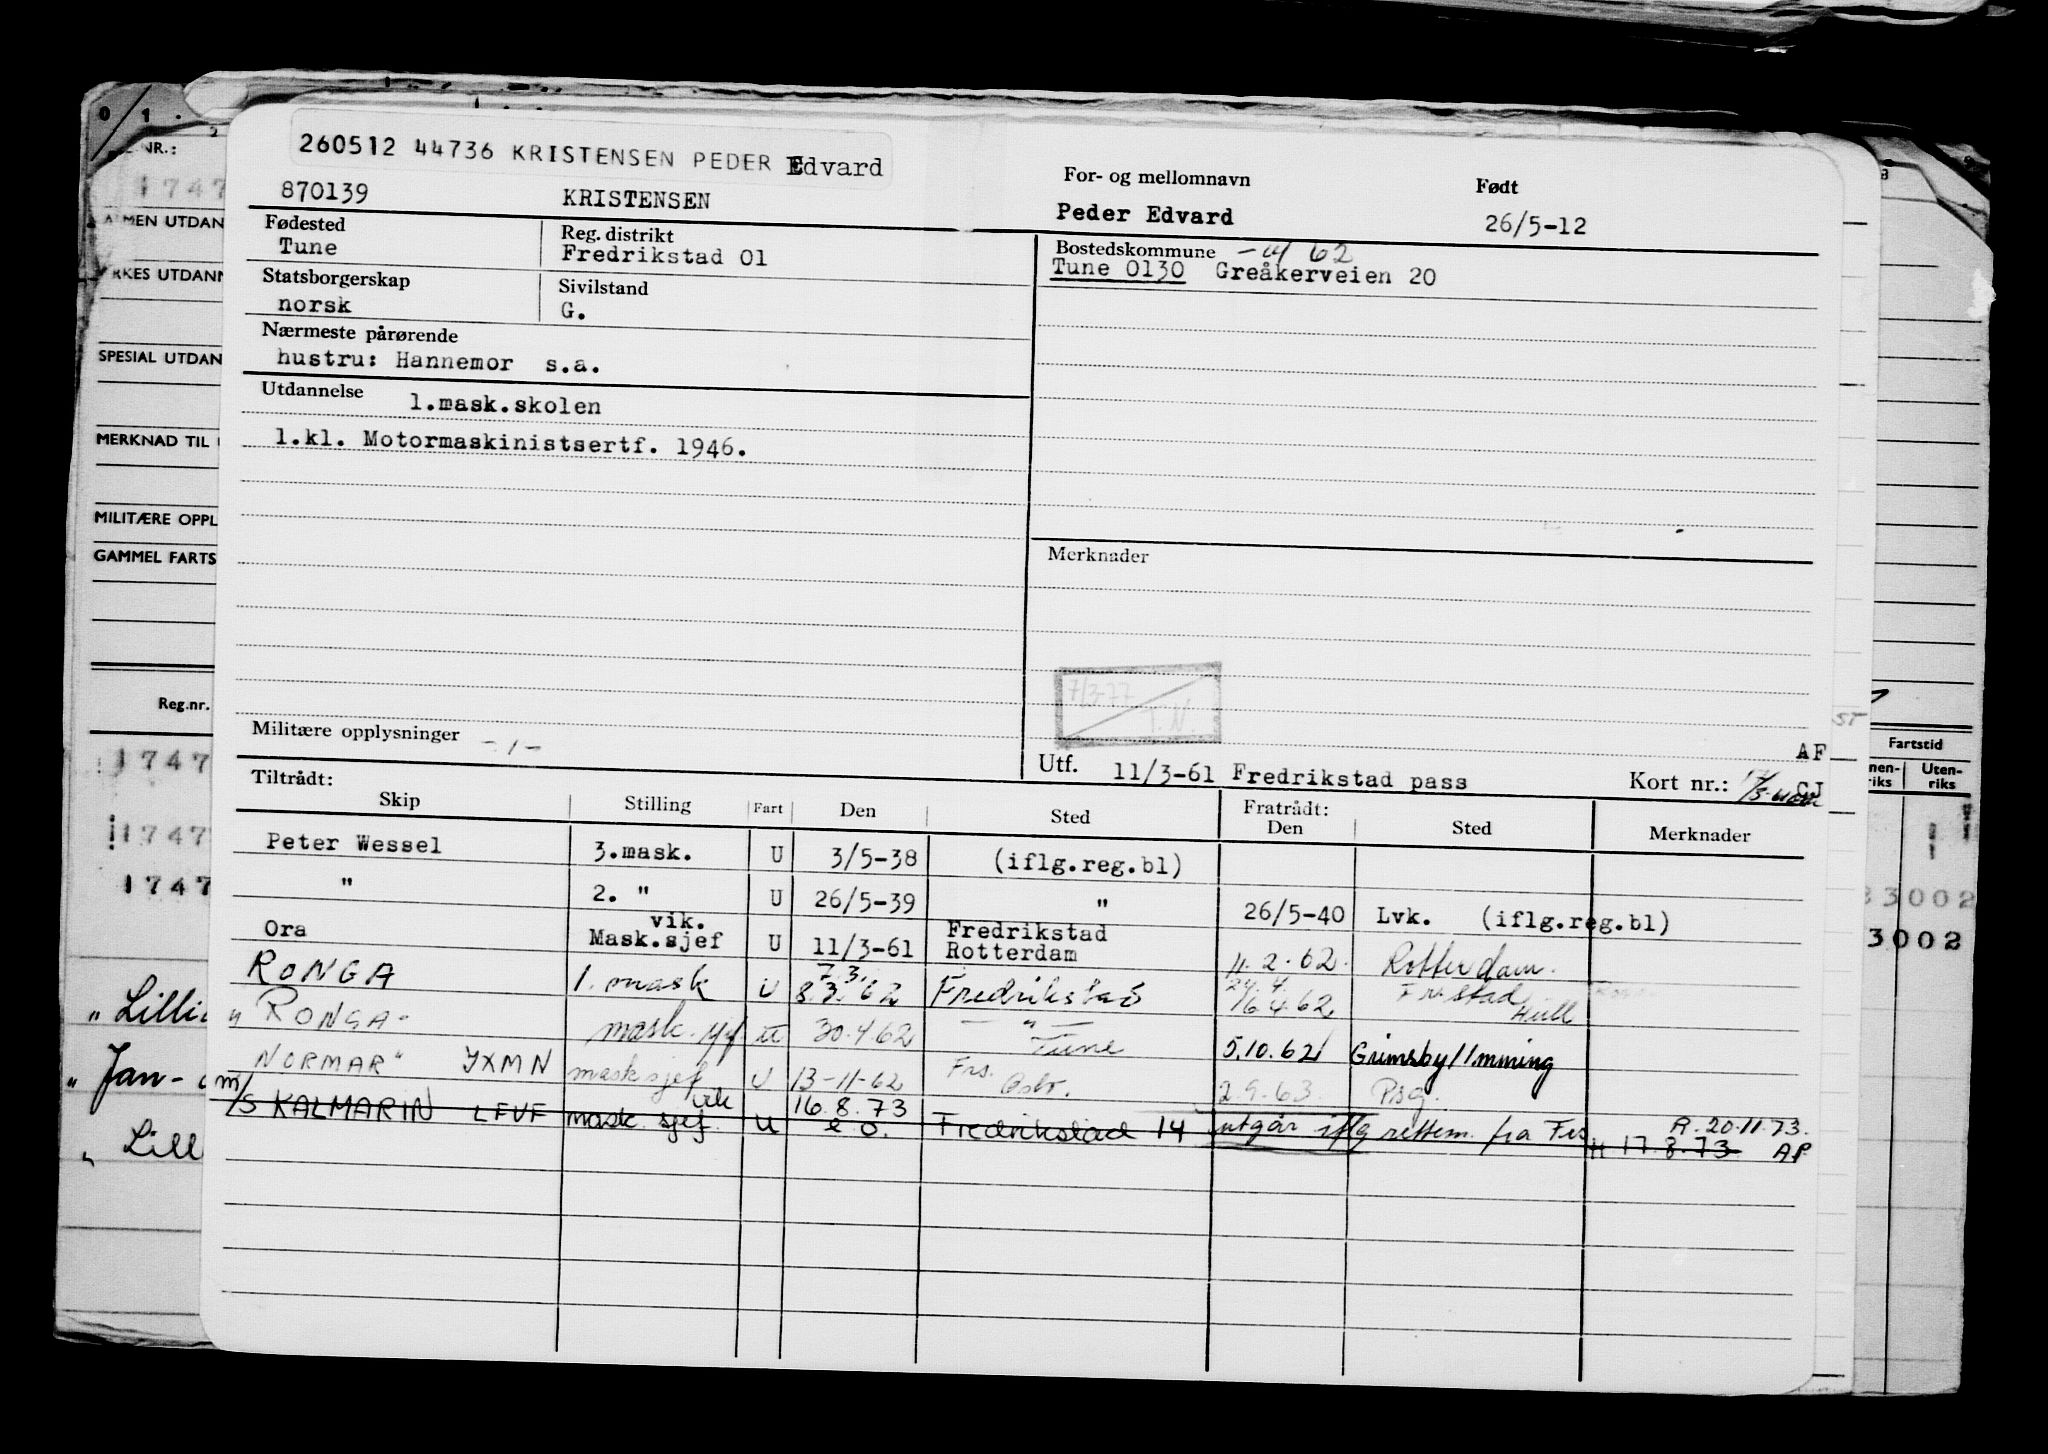 260512 44736 KRISTENSEN PEDER Edvard
870139 KRISTENSEN
For- og mellomnavn
Peder Edvard
Født
26/5-12
Fødested
Tune
Reg. distrikt
Fredrikstad 01
Bostedskommune 62
Tune 0130 Greåkerveien 20
Statsborgerskap
norsk
Sivilstand
G.
Nærmeste pårørende
hustru: Hannemor s.a.
Utdannelse 1.mask.skolen
1.kl. Motormaskinistsertf. 1946.
Merknader
7/3-77
T.N.
Militære opplysninger -/-
Utf. 11/3-61 Fredrikstad pass
AF
Kort nr.: CJ
Tiltrådt:
Skip Stilling Fart Den Sted Fratrådt: Den Sted Merknader
Peter Wessel 3.mask. U 3/5-38 (iflg.reg.bl)
" 2. " U 26/5-39 " 26/5-40 Lvk. (iflg.reg.bl)
Ora vik. Mask.sjef U 11/3-61 Fredrikstad Rotterdam 11.2.62. Rotterdam.
RONGA 1. mask U 7.3. 8.3.62 Fredrikstad 24.4. 16.4.62 Fr.stad Hull
" RONGA " mask. sjef U 30.4.62 — " — Tune 5.10.62 Grimsby/Imming
NORMAR" JXMN masksjef U 13-11-62 Frs. Oslo. 2.9.63. Psg.
m/s KALMARIN LFVF mask. sjef. vik U 16.8.73 e.o. Fredrikstad 14 utgår iflg rettem. fra Frs H 17.8.73 R. 20.11.73. AP
0 1.
NR.:
1747
ALMEN UTDAN
YRKES UTDANN
SPESIAL UTDAN
MERKNAD TIL
MILITÆRE OPPL
GAMMEL FARTS
Reg.nr.
1747
1747
1747
Fartstid
nen-riks Uten-riks
33002
3002
" Lilli
" Jan-
" Lill